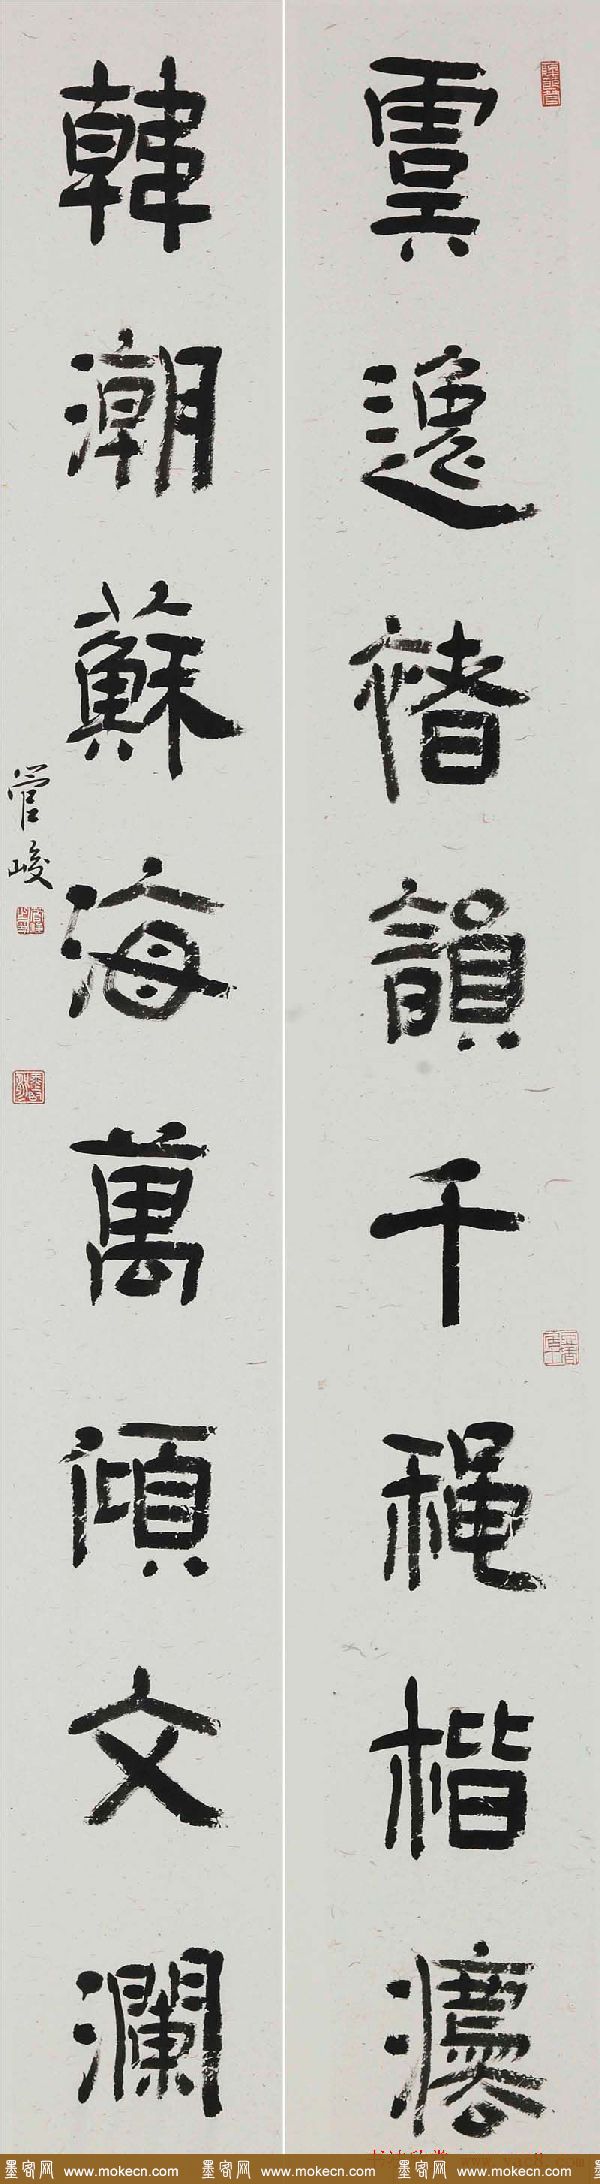 虞逸褚韻千穐楷灋
韓潮蘇海萬頃文瀾
管峻
墨客网 www.mokecn.com 墨客网 www.mokecn.com 墨客网 www.mokecn.com